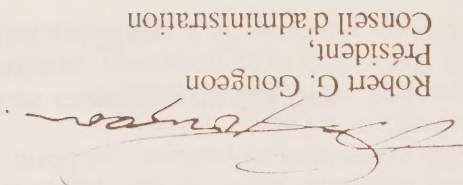 Robert G. Gougeon
Président,
Conseil d'administration